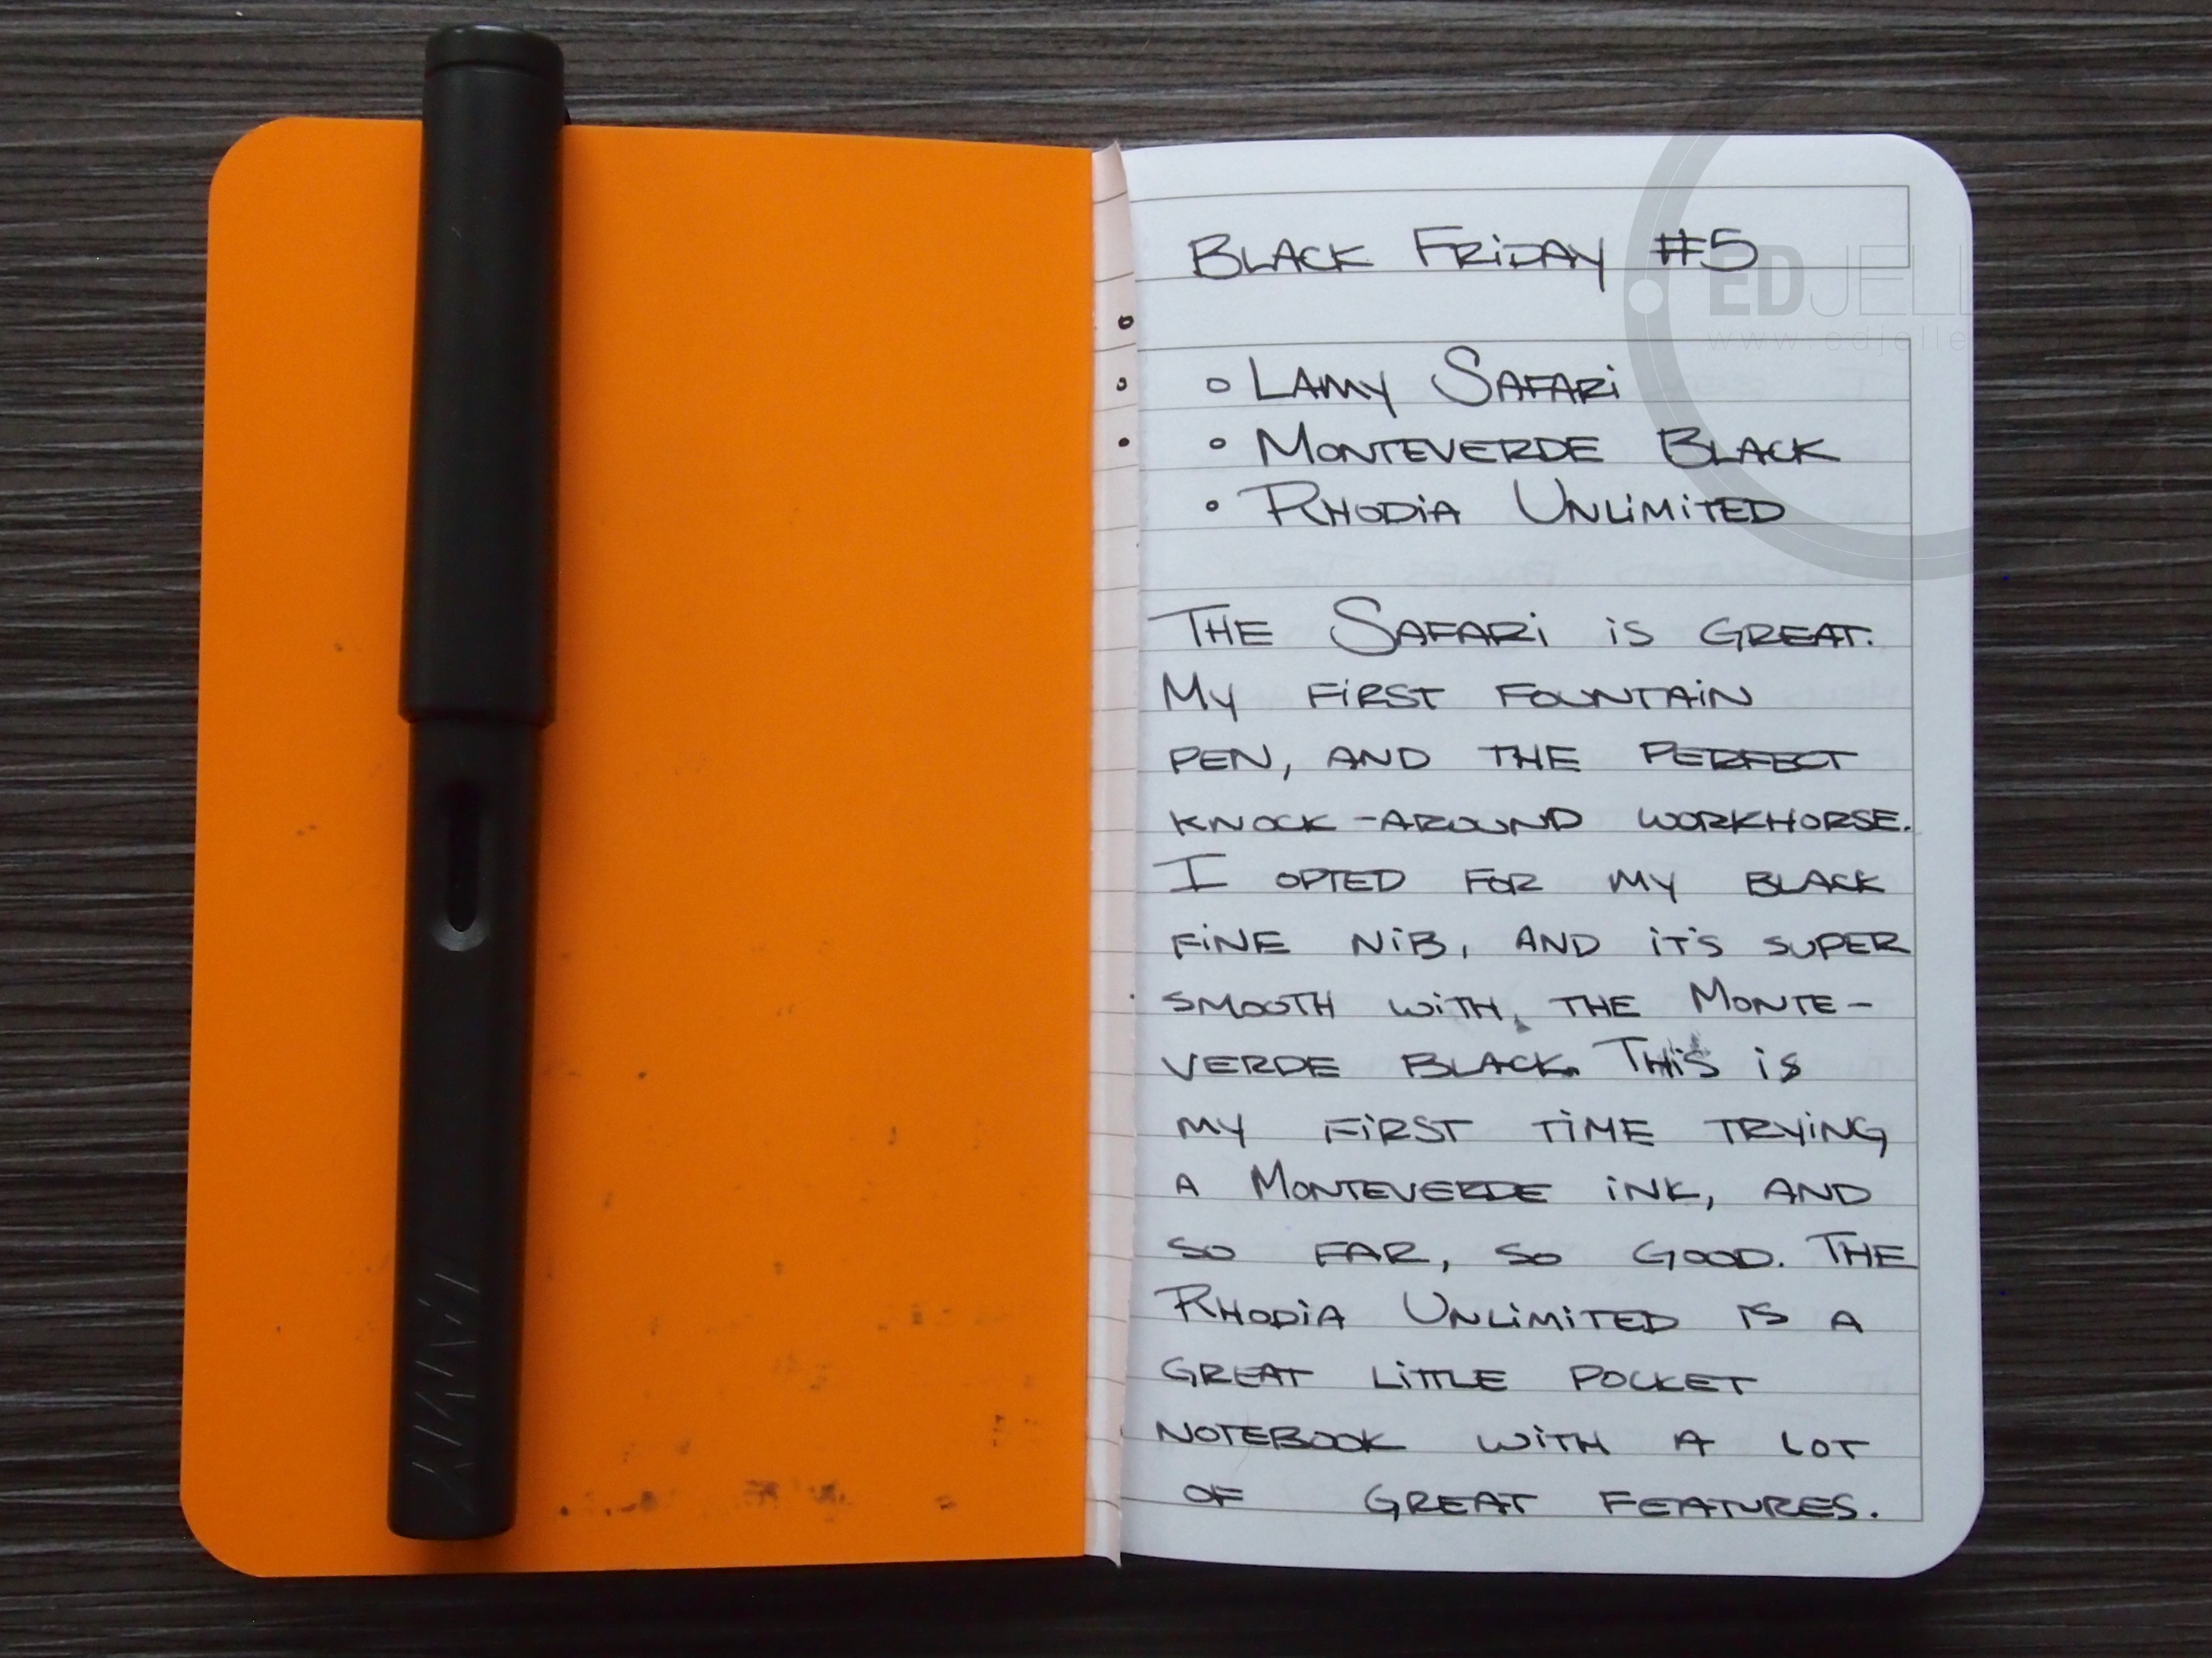 LAMY
BLACK FRiDAY #5
EDJELL
www.edjelle
∘ LAMY SAFARi
∘ MONTEVERDE BLACK
∘ RHODiA UNLiMiTED
THE SAFARi iS GREAT.
MY FiRST FOUNTAiN
PEN, AND THE PERFECT
KNOCK-AROUND WORKHORSE.
I OPTED FOR MY BLACK
FiNE NiB, AND iT'S SUPER
SMOOTH WiTH THE MONTE-
VERDE BLACK. THiS iS
MY FiRST TiME TRYiNG
A MONTEVERDE iNK, AND
SO FAR, SO GOOD. THE
RHODiA UNLiMiTED IS A
GREAT LiTTLE POCKET
NOTEBOOK WiTH A LOT
OF GREAT FEATURES.